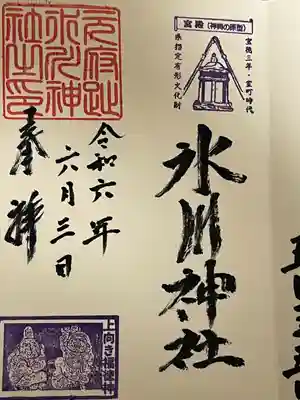 宮殿(神輿の原型)
宝徳三年・室町時代
県指定有形文化財
氷川神社
奉拝
令和六年
六月三日
氷川神
社之印